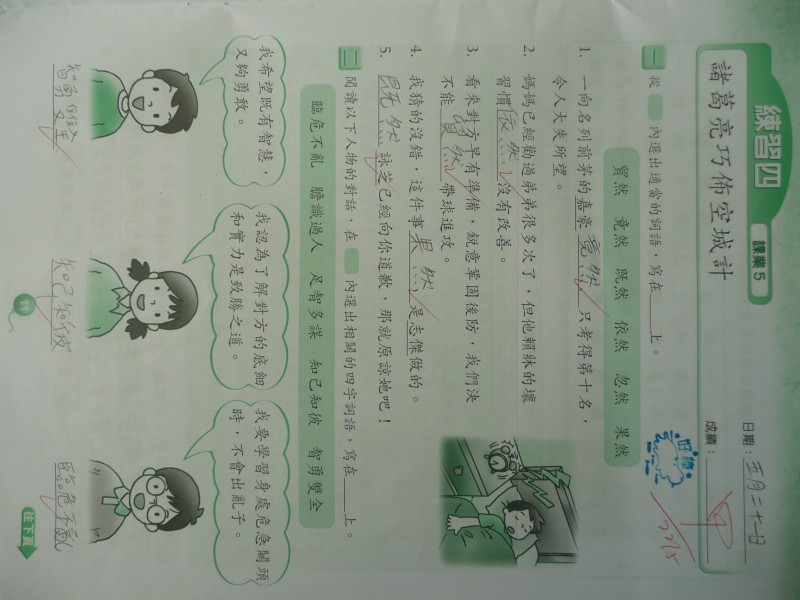 練習四
課業5
諸葛亮巧佈空城計
日期：五月二十一日
成績：甲
好棒
22/5
一 從 內選出適當的詞語，寫在 上。
貿然 竟然 既然 依然 忽然 果然
1. 一向名列前茅的嘉豪竟然只考得第十名，
令人大失所望。
2. 媽媽已經勸過弟弟很多次了，但他賴牀的壞
習慣依然沒有改善。
3. 看來對方早有準備，銳意鞏固後防，我們決
不能貿然帶球進攻。
4. 我猜的沒錯，這件事果然是志傑做的。
5. 既然詠芝已經向你道歉，那就原諒她吧！
二 閱讀以下人物的對話，在 內選出相關的四字詞語，寫在 上。
臨危不亂 膽識過人 足智多謀 知己知彼 智勇雙全
我希望既有智慧，
又夠勇敢。
智勇雙全
我認為了解對方的底細
和實力是致勝之道。
知己知彼
我要學習身處危急關頭
時，不會出亂子。
臨危不亂
11
往下頁